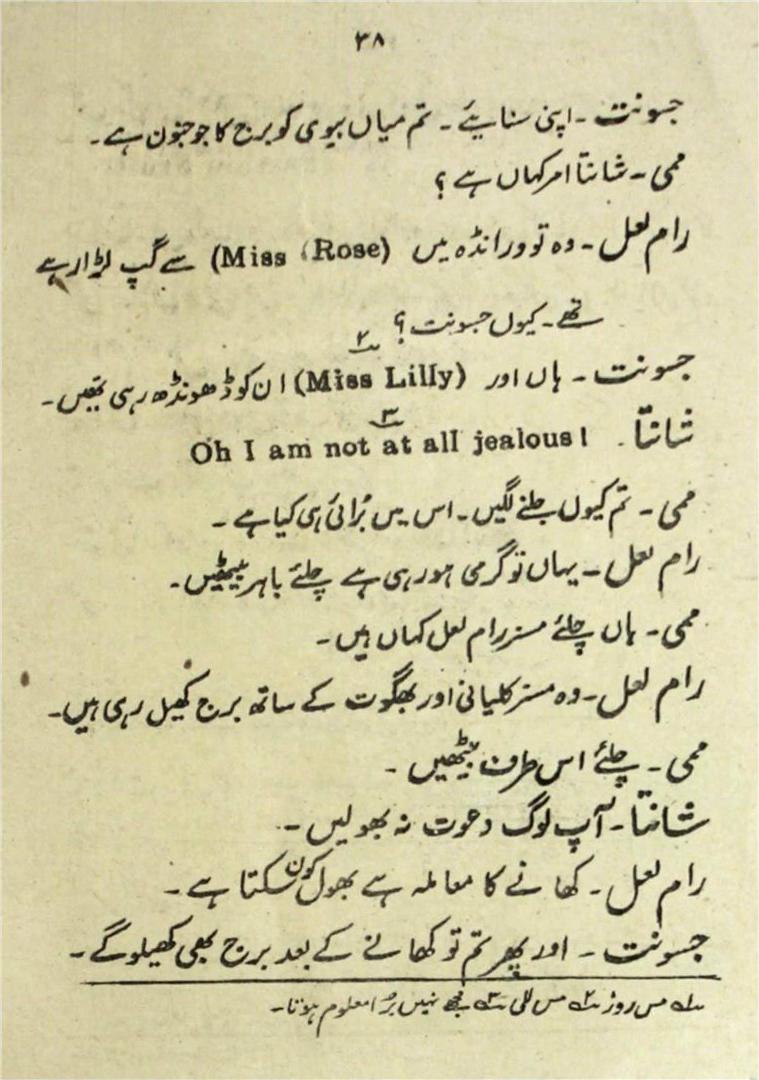 ۳۸
جسونت ۔ اپنی سنایئے ۔ تم میاں بیوی کو برج کا جو جنون ہے ۔
ممی ۔ شانتا امر کہاں ہے ؟
رام لعل ۔ وہ تو ورانڈہ میں (Miss Rose) سے گپ لڑا رہے
تھے ۔ کیوں جسونت ؟
جسونت ۔ ہاں اور (Miss Lilly) ۲ ان کو ڈھونڈھ رہی تھیں ۔
شانتا ۔ Oh I am not at all jealous! ۳
ممی ۔ تم کیوں جلنے لگیں ۔ اس میں بُرائی ہی کیا ہے ۔
رام لعل ۔ یہاں تو گرمی ہو رہی ہے چلئے باہر بیٹھیں ۔
ممی ۔ ہاں چلئے مسز رام لعل کہاں ہیں ۔
رام لعل ۔ وہ مسز کلیانی اور بھگوت کے ساتھ برج کھیل رہی ہیں ۔
ممی ۔ چلئے اس طرف بیٹھیں ۔
شانتا ۔ آپ لوگ دعوت نہ بھولیں ۔
رام لعل ۔ کھانے کا معاملہ ہے بھول کون سکتا ہے ۔
جسونت ۔ اور پھر تم تو کھانے کے بعد برج بھی کھیلو گے ۔
۱ مس روز ۲ مس للی ۳ مجھے نہیں بُرا معلوم ہوتا ۔